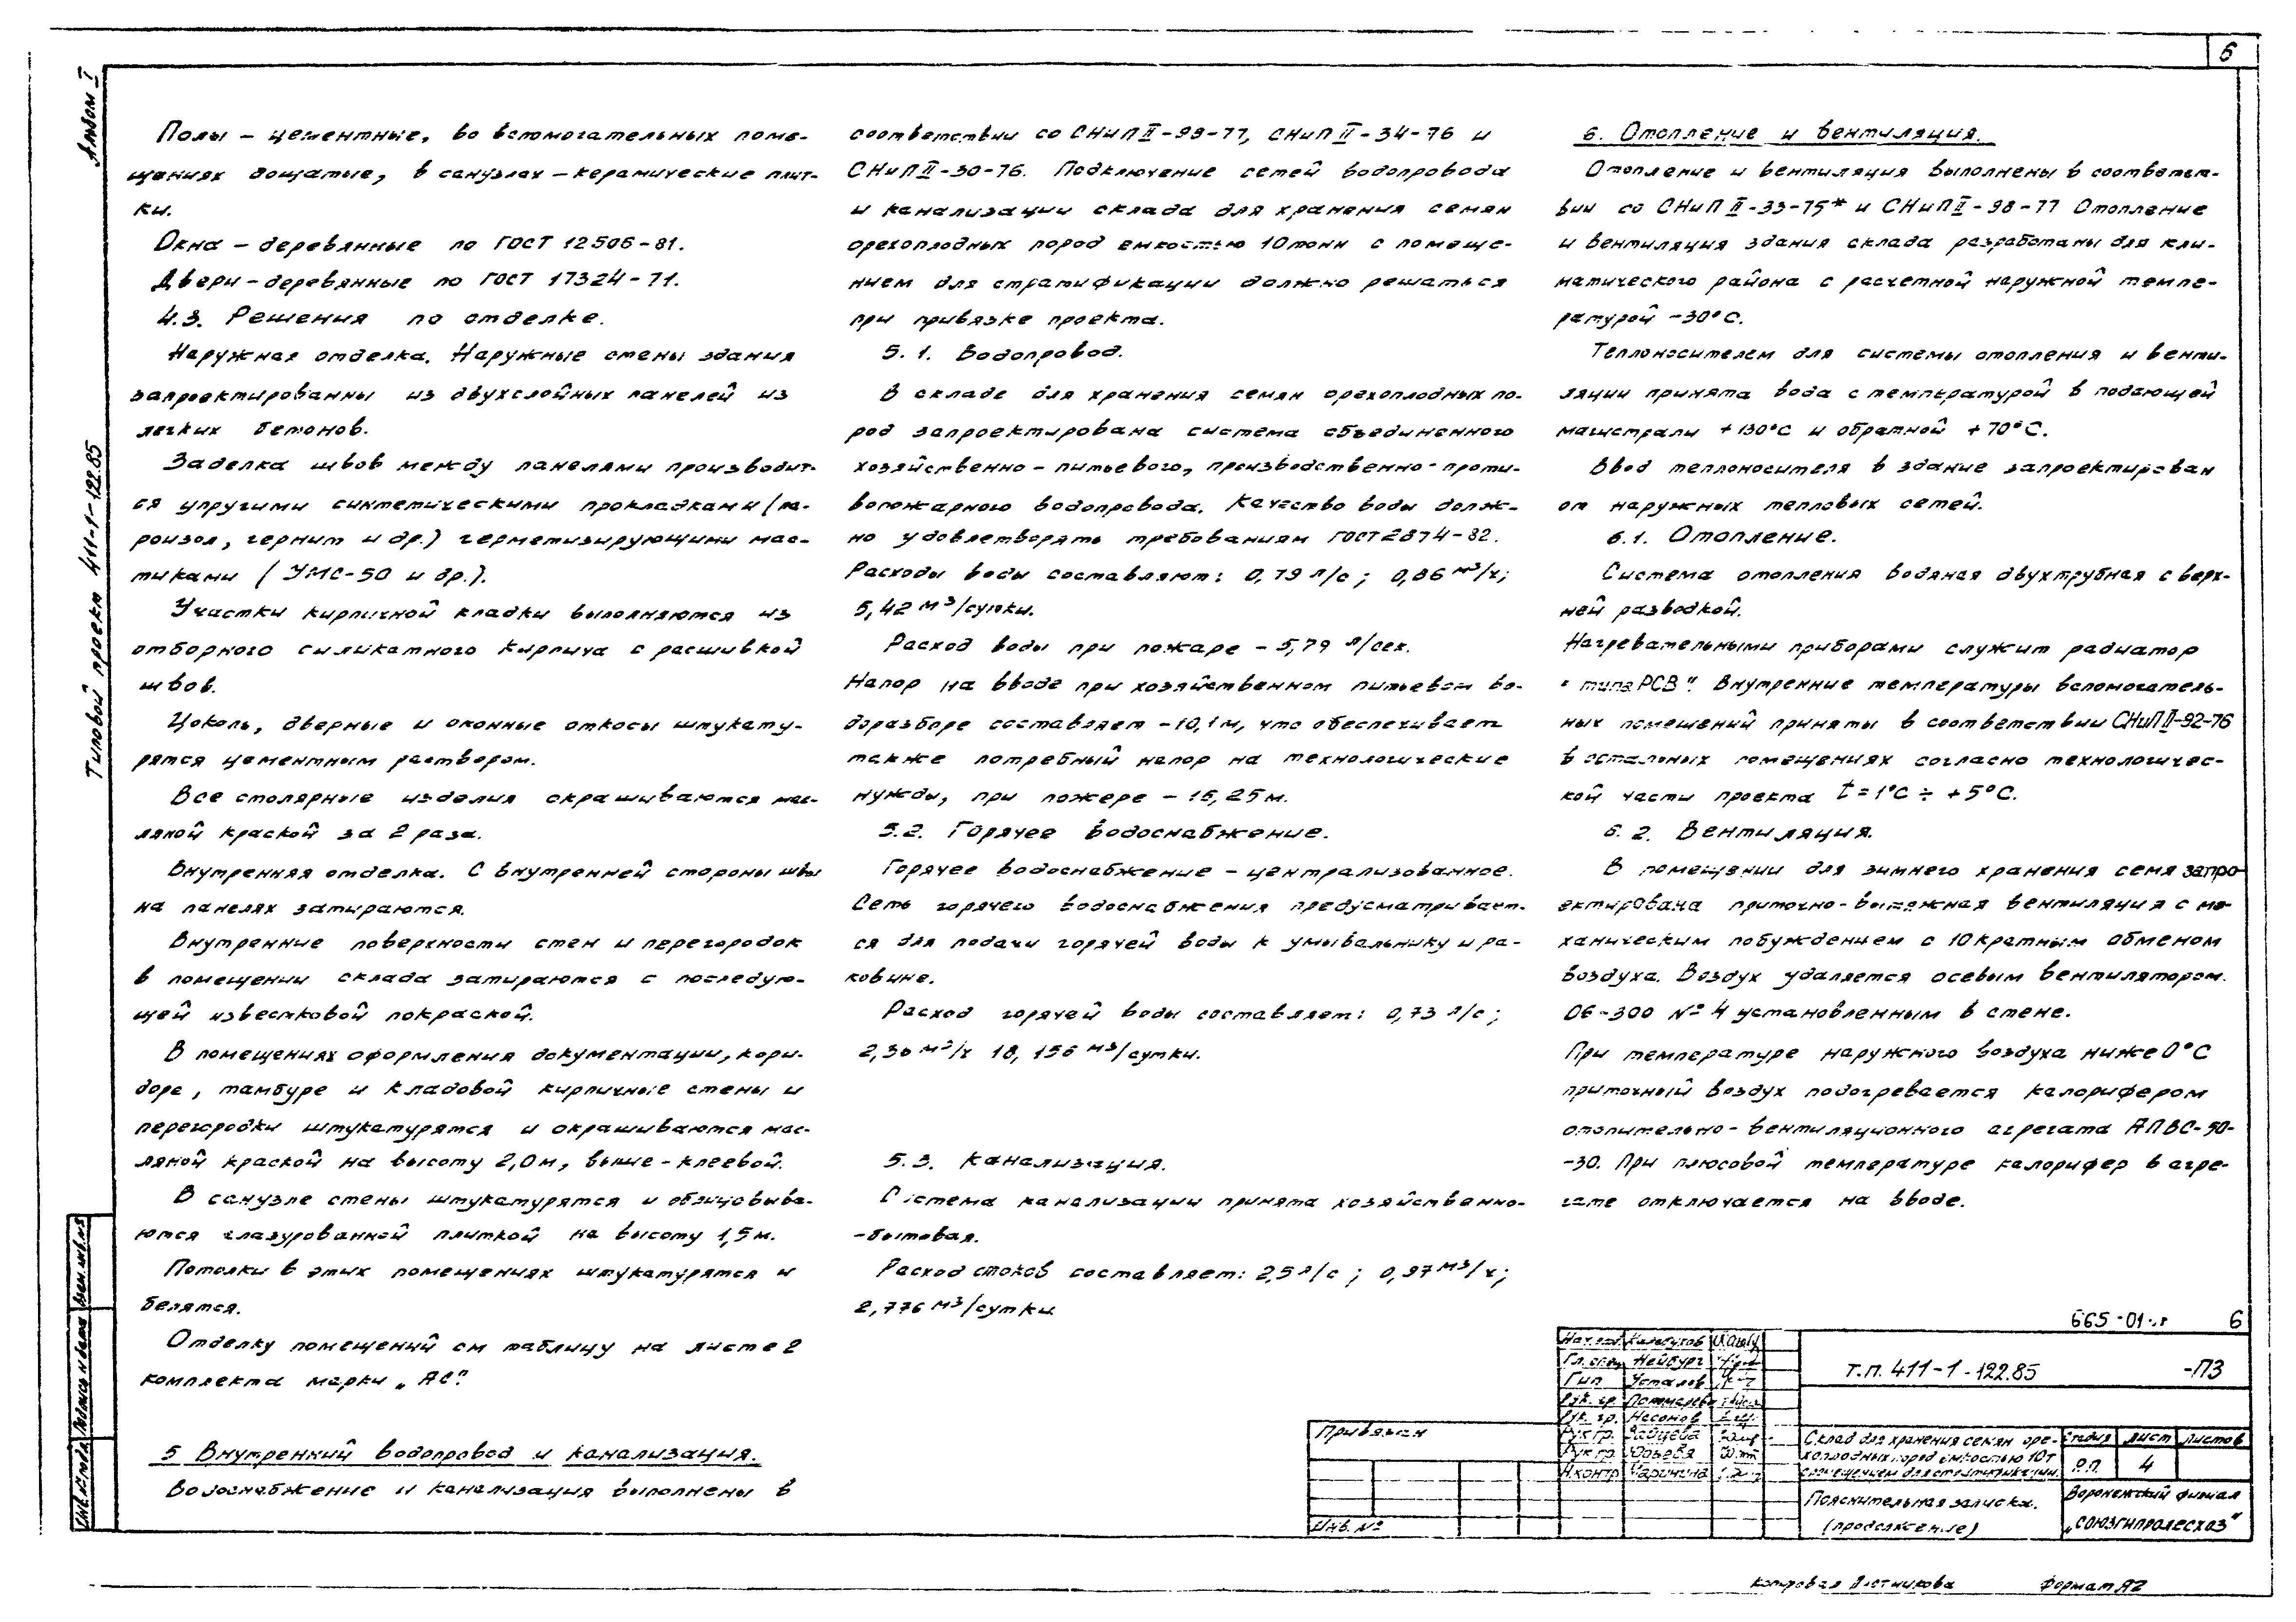 6
Альбом I
Типовой проект 411-1-122.85
Полы – цементные, во вспомогательных поме-
щениях дощатые, в санузлах – керамические плит-
ки.
Окна – деревянные по ГОСТ 12506-81.
Двери – деревянные по ГОСТ 17324-71.
4.3. Решения по отделке.
Наружная отделка. Наружные стены здания
запроектированны из двухслойных панелей из
легких бетонов.
Заделка швов между панелями производит-
ся упругими синтетическими прокладками (по-
роизол, гернит и др.) герметизирующими мас-
тиками (УМС-50 и др.).
Участки кирпичной кладки выполняются из
отборного силикатного кирпича с расшивкой
швов.
Цоколь, дверные и оконные откосы штукату-
рятся цементным раствором.
Все столярные изделия окрашиваются мас-
ляной краской за 2 раза.
Внутренняя отделка. С внутренней стороны швы
на панелях затираются.
Внутренние поверхности стен и перегородок
в помещении склада затираются с последую-
щей известковой покраской.
В помещениях оформления документации, кори-
доре, тамбуре и кладовой кирпичные стены и
перегородки штукатурятся и окрашиваются мас-
ляной краской на высоту 2,0м, выше – клеевой.
В санузле стены штукатурятся и облицовыва-
ются глазурованной плиткой на высоту 1,5м.
Потолки в этих помещениях штукатурятся и
белятся.
Отделку помещений см таблицу на листе 2
комплекта марки „АС".
5 Внутренний водопровод и канализация.
Водоснабжение и канализация выполнены в
соответствии со СНиП II-99-77, СНиП II-34-76 и
СНиП II-30-76. Подключение сетей водопровода
и канализации склада для хранения семян
орехоплодных пород емкостью 10тонн с помеще-
нием для стратификации должно решаться
при привязке проекта.
5.1. Водопровод.
В складе для хранения семян орехоплодных по-
род запроектирована система объединенного
хозяйственно-питьевого, производственно-проти-
вопожарного водопровода. Качество воды долж-
но удовлетворять требованиям ГОСТ 2874-82.
Расходы воды составляют: 0,79 л/с; 0,86 м³/ч;
5,42 м³/сутки.
Расход воды при пожаре – 5,79 л/сек.
Напор на вводе при хозяйственном питьевом во-
доразборе составляет – 10,1м, что обеспечивает
также потребный напор на технологические
нужды, при пожере – 15,25м.
5.2. Горячее водоснабжение.
Горячее водоснабжение – централизованное.
Сеть горячего водоснабжения предусматривает-
ся для подачи горячей воды к умывальнику и ра-
ковине.
Расход горячей воды составляет: 0,73 л/с;
2,30 м³/ч 18,156 м³/сутки.
5.3. Канализация.
Система канализации принята хозяйственно-
-бытовая.
Расход стоков составляет: 2,5 л/с; 0,97 м³/ч;
2,776 м³/сутки
6. Отопление и вентиляция.
Отопление и вентиляция выполнены в соответст-
вии со СНиП II-33-75* и СНиП II-98-77 Отопление
и вентиляция здания склада разработаны для кли-
матического района с расчетной наружной темпе-
ратурой -30°С.
Теплоносителем для системы отопления и венти-
ляции принята вода с температурой в подающей
магистрали +130°С и обратной +70°С.
Ввод теплоносителя в здание запроектирован
от наружных тепловых сетей.
6.1. Отопление.
Система отопления водяная двухтрубная с верх-
ней разводкой.
Нагревательными приборами служит радиатор
„типа РСВ". Внутренние температуры вспомогатель-
ных помещений приняты в соответствии СНиП II-92-76
в остальных помещениях согласно технологичес-
кой части проекта t=1°С ÷ +5°С.
6.2. Вентиляция.
В помещении для зимнего хранения семя запро-
ектирована приточно-вытяжная вентиляция с ме-
ханическим побуждением с 10кратным обменом
воздуха. Воздух удаляется осевым вентилятором.
06-300 №4 установленным в стене.
При температуре наружного воздуха ниже 0°С
приточный воздух подогревается калорифером
отопительно-вентиляционного агрегата АПВС-50-
-30. При плюсовой температуре калорифер в агре-
гате отключается на вводе.
665-01 6
Гл. спец Нейбург
Гип Усталов
Рук. гр.
Рук. гр. Несонов
Рук гр. Зайцева
Рук гр. Юрьева
Н.контр
Т.П. 411-1-122.85 -ПЗ
Привязан
Инв. №
Склад для хранения семян оре-
хоплодных пород емкостью 10т
с помещением для стратификации.
Стадия лист листов
Р.П. 4
Пояснительная записка.
(продолжение)
Воронежский филиал
„СОЮЗГИПРОЛЕСХОЗ"
Инв.№подл. Подпись и дата Взам.инв.№
Копировал Формат А2